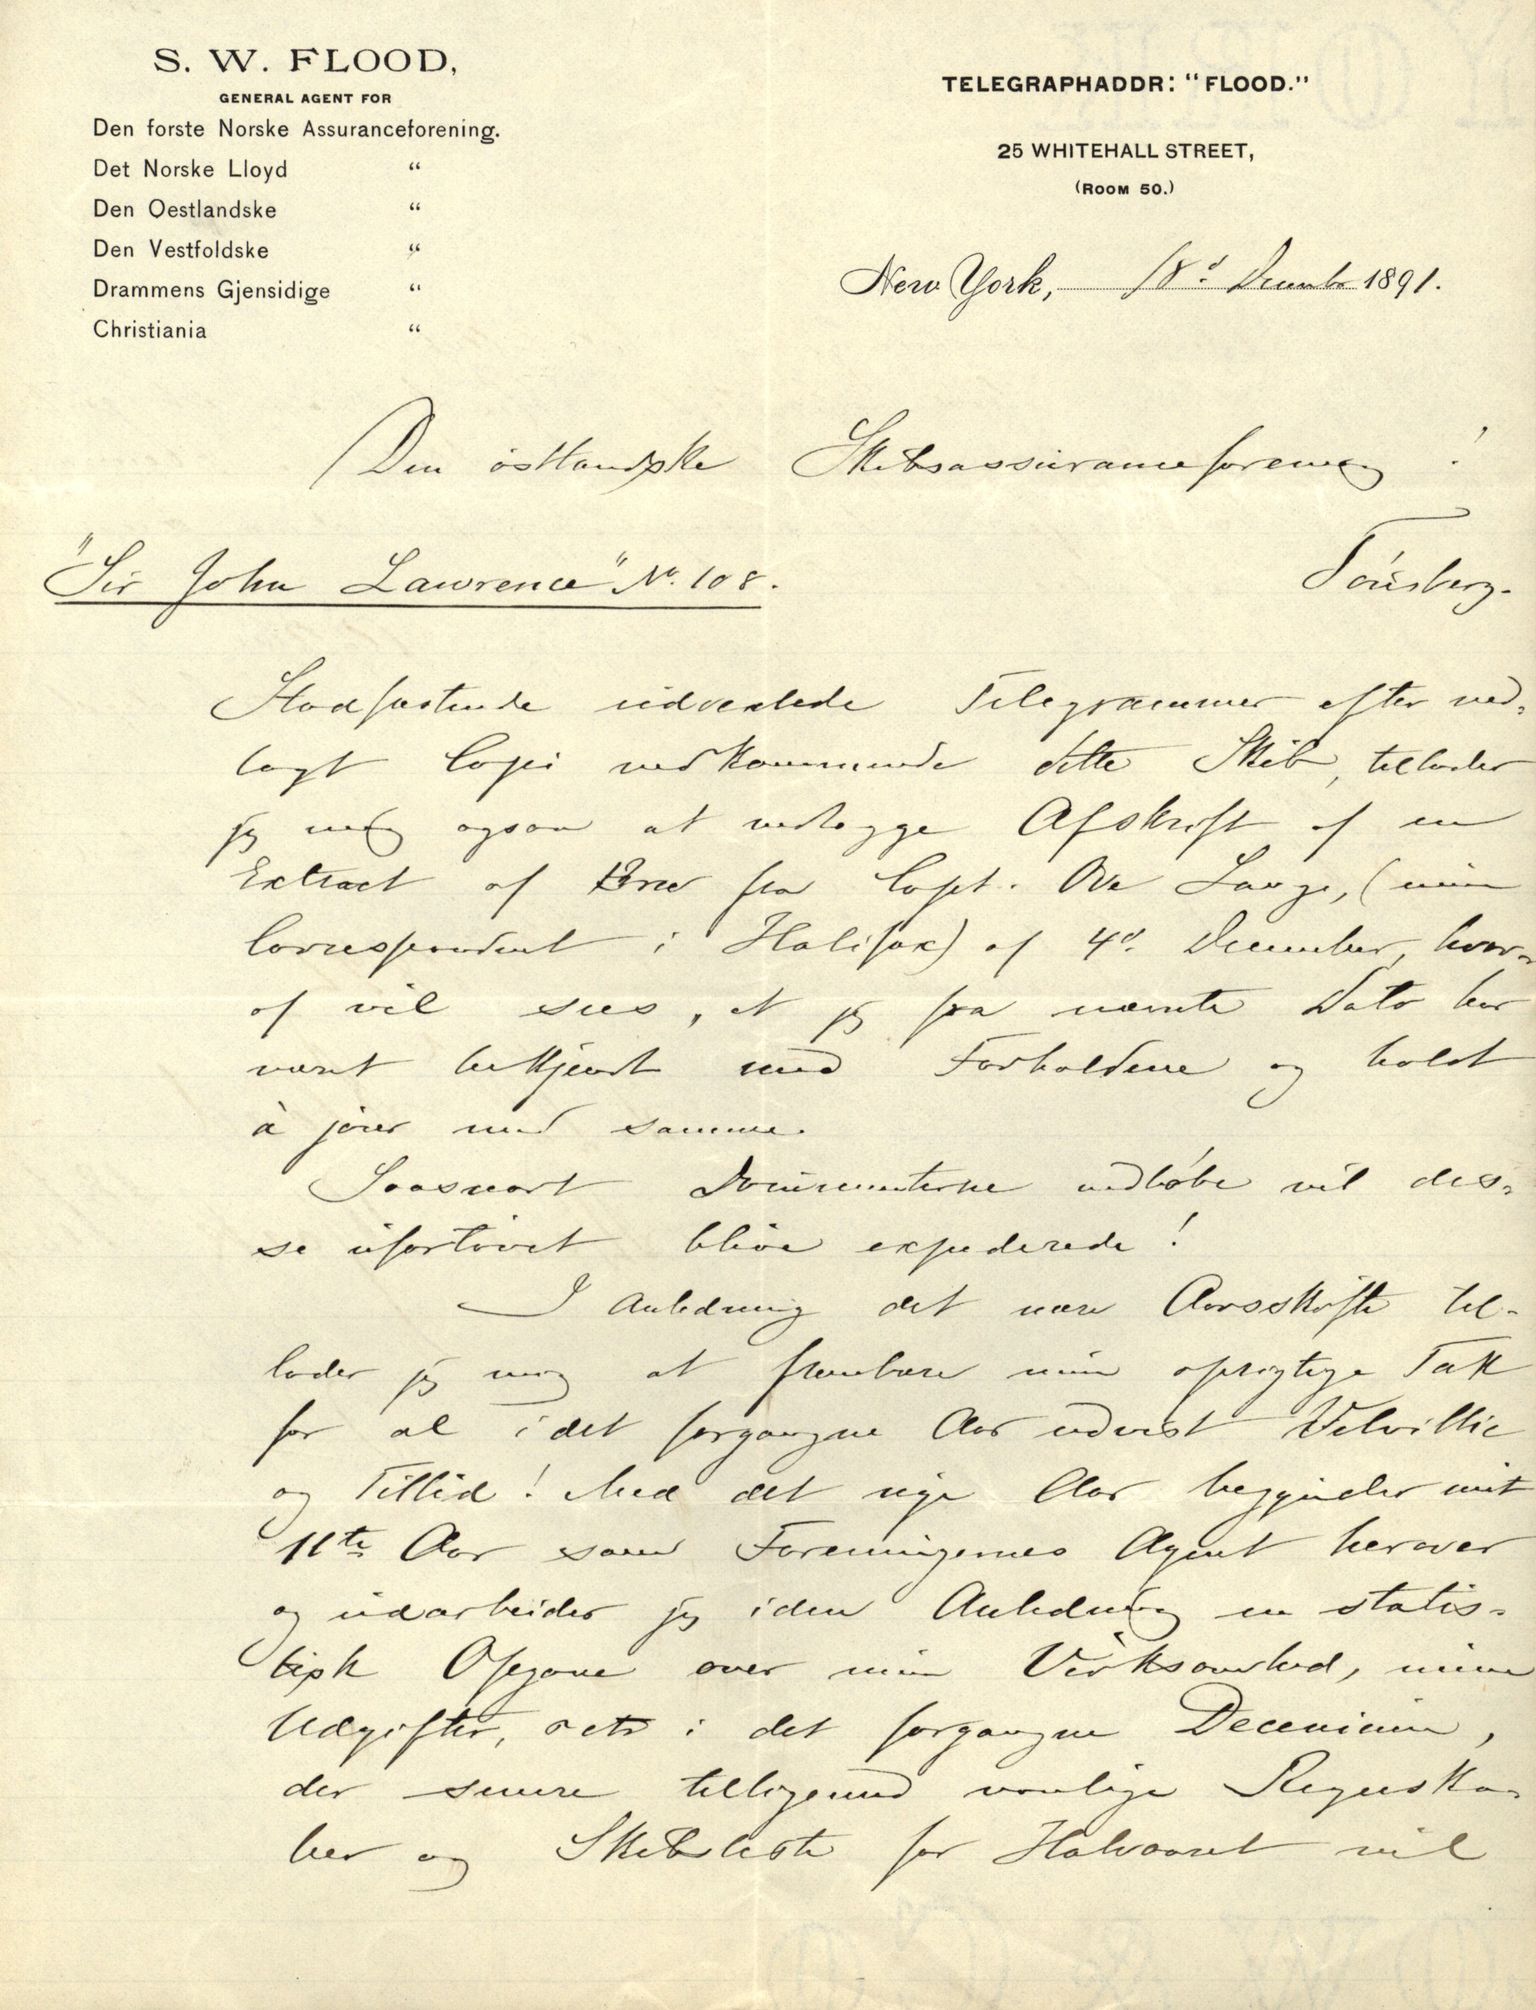 S. W. FLOOD,
GENERAL AGENT FOR
Den forste Norske Assuranceforening.
Det Norske Lloyd "
Den Oestlandske "
Den Vestfoldske "
Drammens Gjensidige "
Christiania "
TELEGRAPHADDR: "FLOOD."
25 WHITEHALL STREET,
(ROOM 50.)
New York, 18d December 1891.
Den östlandske Skibsassuranceforening!
"Sir John Lawrence" No. 108.
Tönsberg.
Stadfæstende udvexlede Telegrammer efter ved-
lagt Copi vedkommende dette Skib, tillader
jeg mig ogsaa at vedlægge Afskrift af en
Extract af Brev fra Capt. Ove Lange, (min
Correspondent i Halifax) af 4d December, hvor-
af vil sees, at jeg fra nævnte Dato har
været bekjendt med Forholdene og holdt
à jour med samme.
Saasnart Documenterne indløbe vil dis-
se ufortøvet blive expederede!
I Anledning det nære Aarsskifte til-
lader jeg mig at frembære min oprigtige Tak
for al i det forgangne Aar udvist Velvillie
og Tillid! Med det nye Aar begynder mit
11te Aar som Foreningernes Agent herover
og udarbeider jeg i den Anledning en statis-
tisk Opgave over min Virksomhed, mine
Udgifter, o etc i det forgangne Decennium,
der senere tilligemed vanlige Regnska-
ber og Skibsliste for Halvaaret vil